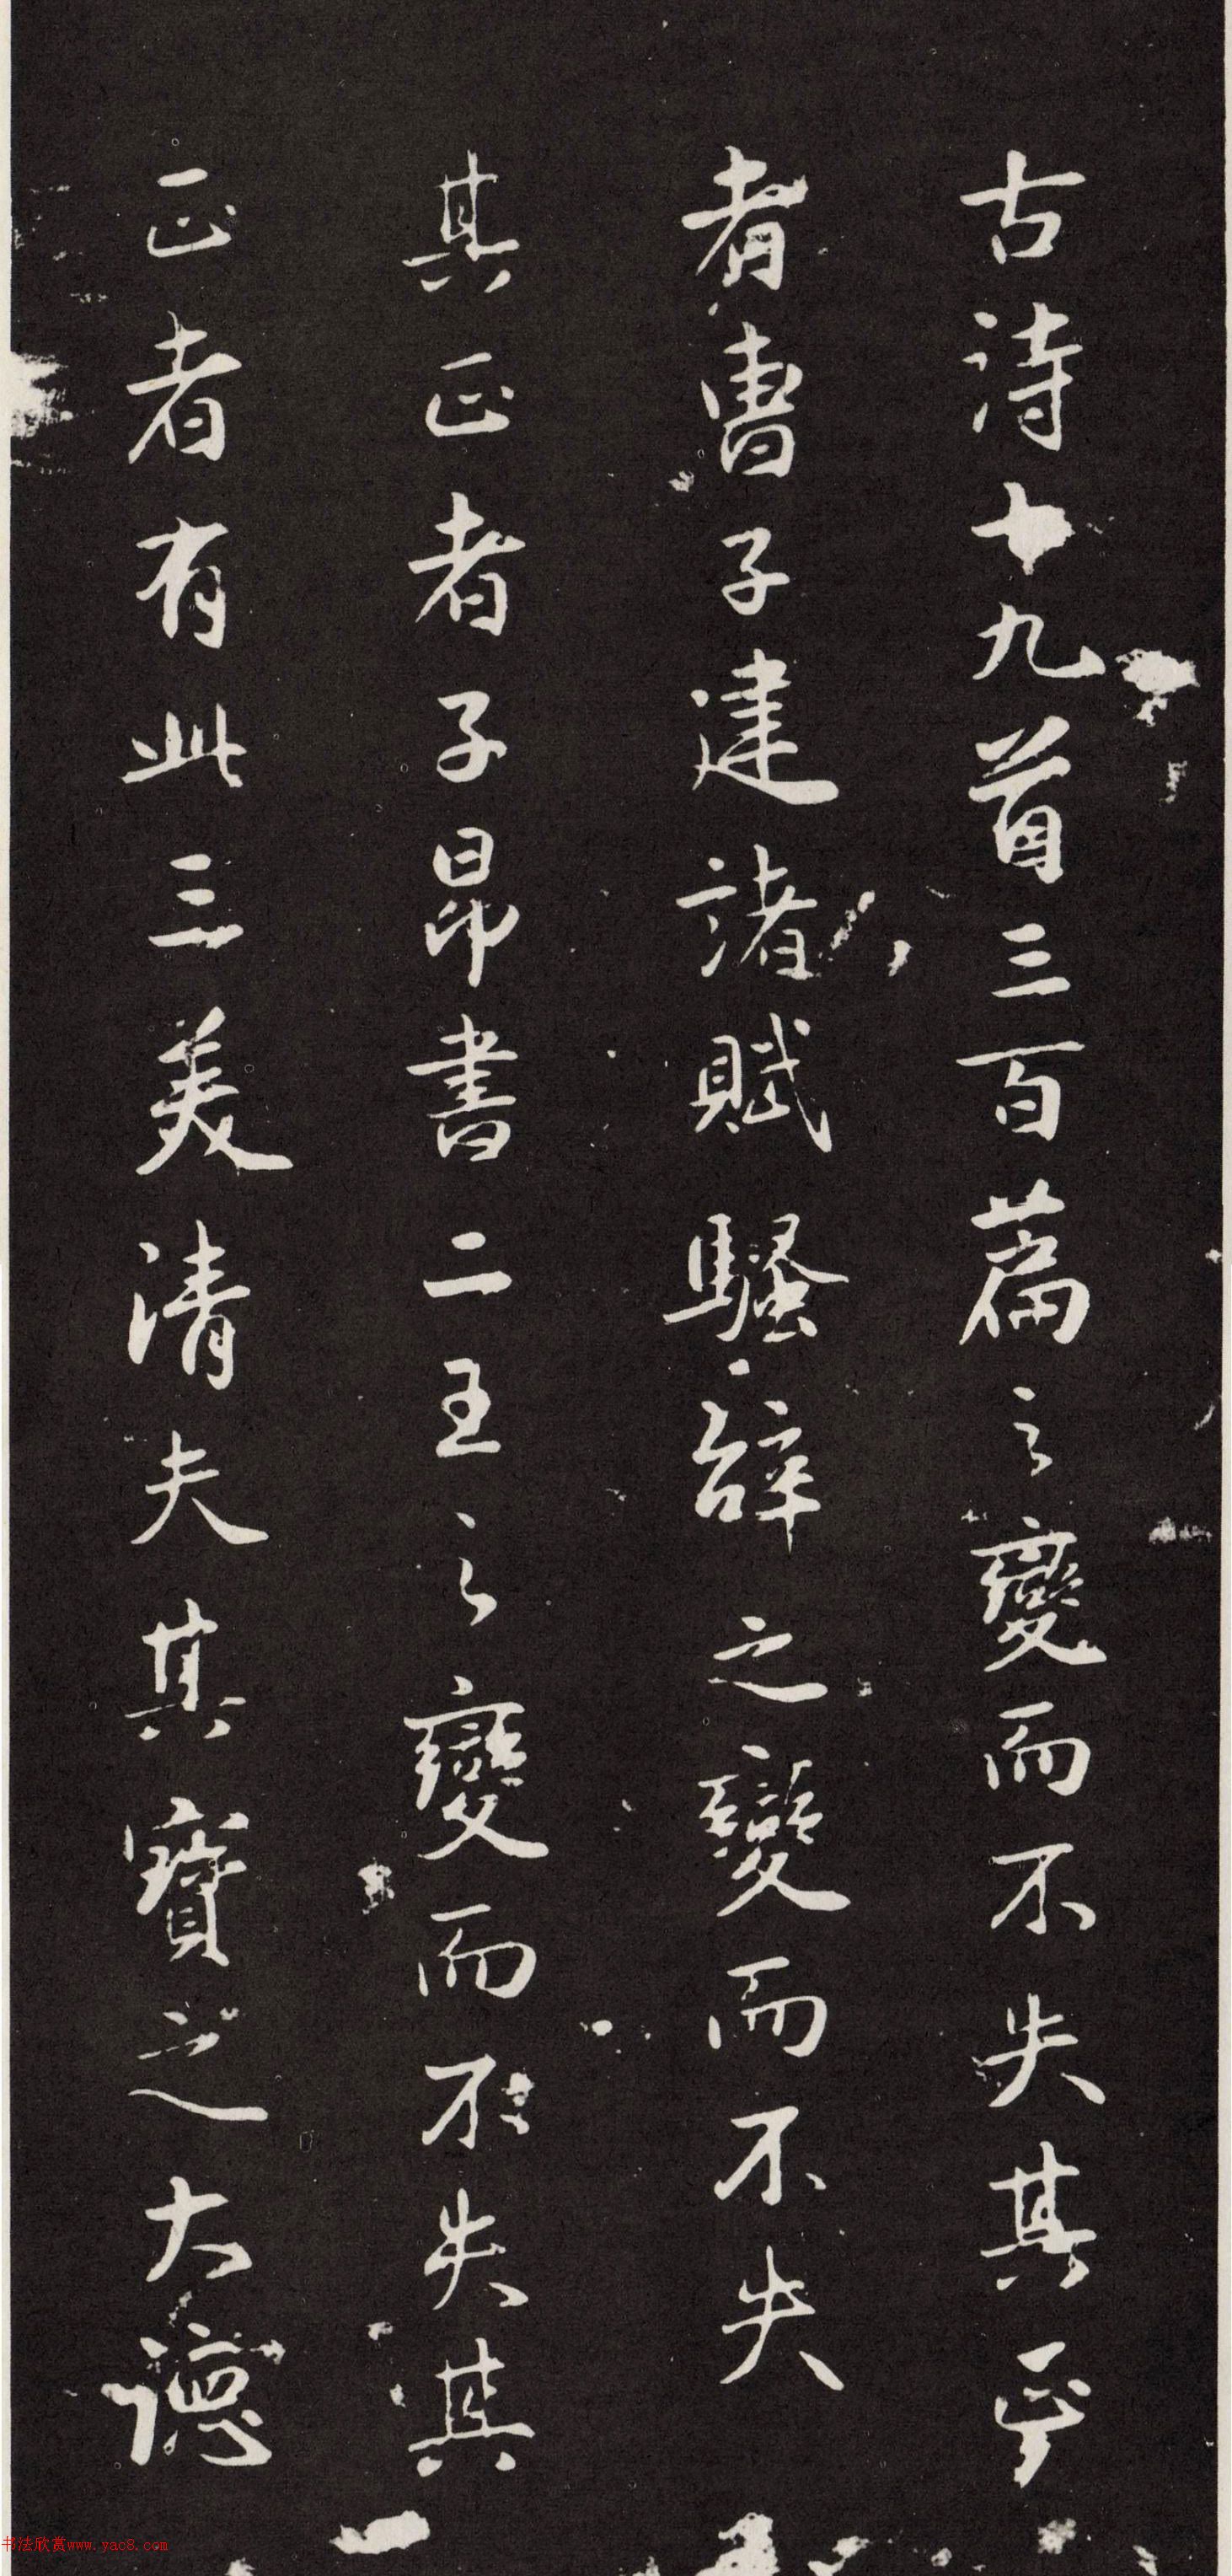 古詩十九首三百篇之變而不失其正
者曹子建諸賦騷辭之變而不失
其正者子昂書二王之變而不失其
正者有此三美清夫其寶之大德
书法欣赏www.yac8.com